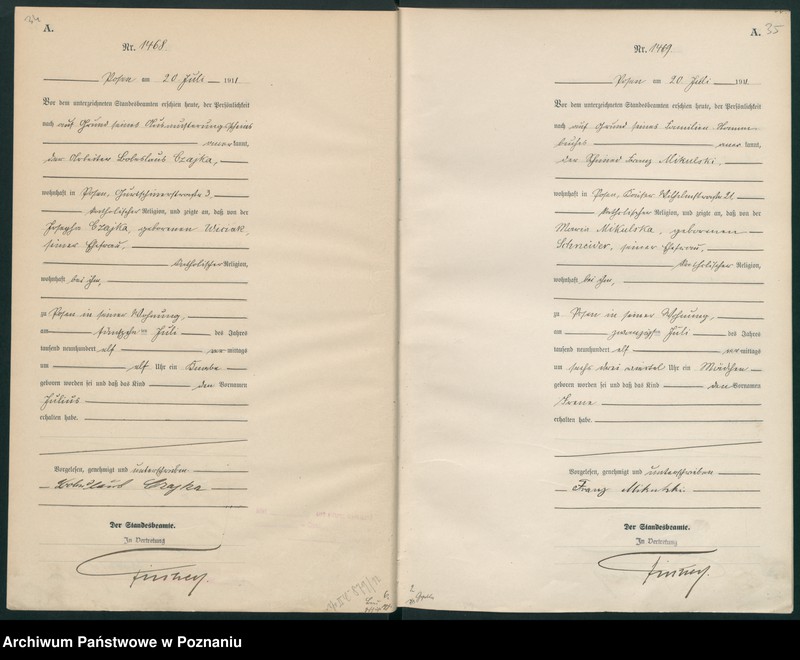 34
A.
Nr. 1468
Posen am 20. Juli 1911
Vor dem unterzeichneten Standesbeamten erschien heute, der Persönlichkeit
nach auf Grund seines Ausmusterungsscheins
anerkannt,
der Arbeiter Boleslaus Czajka,
wohnhaft in Posen, 3,
katholischer Religion, und zeigte an, daß von der
Josepha Czajka, geborenen
seiner Ehefrau,
katholischer Religion,
wohnhaft bei ihm,
zu Posen in seiner Wohnung,
am Juli des Jahres
tausend neunhundert elf vormittags
um elf Uhr ein Knabe
geboren worden sei und daß das Kind den Vornamen
Julius
erhalten habe.
Vorgelesen, genehmigt und unterschrieben
Boleslaus Czajka
Der Standesbeamte.
In Vertretung
A. 35
Nr. 1469
Posen am 20 Juli 1911
Vor dem unterzeichneten Standesbeamten erschien heute, der Persönlichkeit
nach auf Grund seines Familien Stamm-
buches anerkannt,
der Schmied Franz Mikulski,
wohnhaft in Posen, Kaiser Wilhelmstraße 21
katholischer Religion, und zeigte an, daß von der
Maria Mikulska, geborenen
Schneider, seiner Ehefrau,
katholischer Religion,
wohnhaft bei ihm,
zu Posen in seiner Wohnung,
am zwanzigsten Juli des Jahres
tausend neunhundert elf vormittags
um sechs drei viertel Uhr ein Mädchen
geboren worden sei und daß das Kind den Vornamen
Irene
erhalten habe.
Vorgelesen, genehmigt und unterschrieben
Franz Mikulski
Der Standesbeamte.
In Vertretung
Archiwum Państwowe w Poznaniu